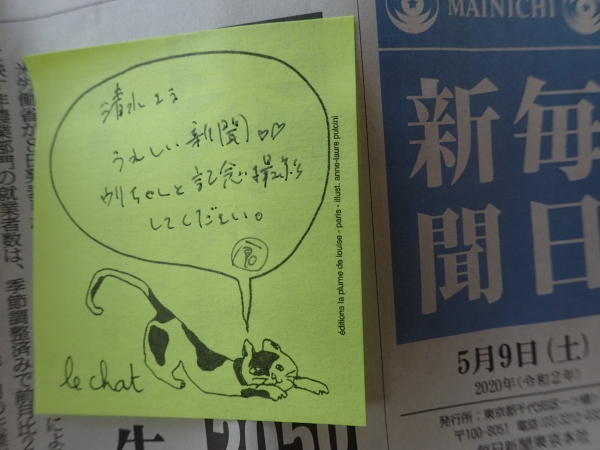 清水さま
うれしい新聞♡♡
ウリちゃんと記念撮影
してください。
倉
le chat
éditions la plume de louise - paris - illust. anne-laure pulcini
MAINICHI
毎日
新聞
5月9日(土)
2020年(令和2年)
発行所:東京都千代田区一ツ橋
〒100-8051 電話03-3212-
毎日新聞東京本社
年農業部門の就業者数は、季節調整済みで前月比
2050